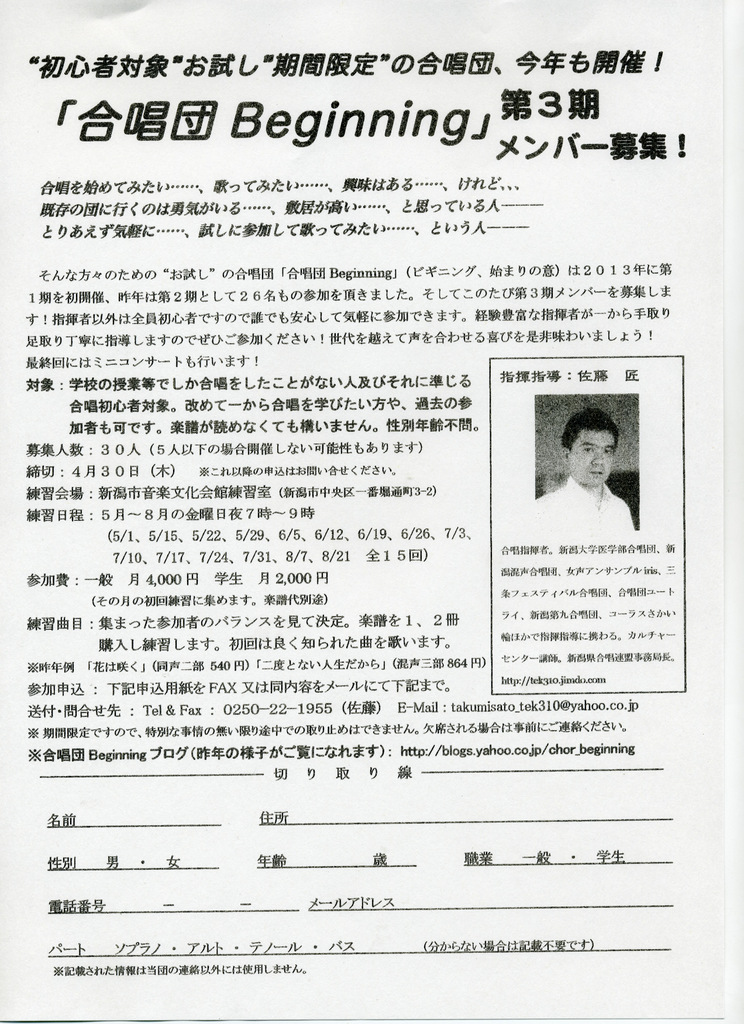 “初心者対象”お試し”期間限定”の合唱団、今年も開催！
「合唱団 Beginning」第３期
メンバー募集！
合唱を始めてみたい……、歌ってみたい……、興味はある……、けれど､､､
既存の団に行くのは勇気がいる……、敷居が高い……、と思っている人―――
とりあえず気軽に……、試しに参加して歌ってみたい……、という人―――
そんな方々のための“お試し”の合唱団「合唱団 Beginning」（ビギニング、始まりの意）は２０１３年に第
１期を初開催、昨年は第２期として２６名もの参加を頂きました。そしてこのたび第３期メンバーを募集しま
す！指揮者以外は全員初心者ですので誰でも安心して気軽に参加できます。経験豊富な指揮者が一から手取り
足取り丁寧に指導しますのでぜひご参加ください！世代を越えて声を合わせる喜びを是非味わいましょう！
最終回にはミニコンサートも行います！
対象：学校の授業等でしか合唱をしたことがない人及びそれに準じる
合唱初心者対象。改めて一から合唱を学びたい方や、過去の参
加者も可です。楽譜が読めなくても構いません。性別年齢不問。
募集人数：３０人（５人以下の場合開催しない可能性もあります）
締切：４月３０日（木） ※これ以降の申込はお問い合せください。
練習会場：新潟市音楽文化会館練習室（新潟市中央区一番堀通町3-2）
練習日程：５月～８月の金曜日夜７時～９時
（5/1、5/15、5/22、5/29、6/5、6/12、6/19、6/26、7/3、
7/10、7/17、7/24、7/31、8/7、8/21 全１５回）
参加費：一般 月 4,000 円 学生 月 2,000 円
（その月の初回練習に集めます。楽譜代別途）
練習曲目：集まった参加者のバランスを見て決定。楽譜を１、２冊
購入し練習します。初回は良く知られた曲を歌います。
※昨年例 「花は咲く」（同声二部 540 円）「二度とない人生だから」（混声三部 864 円）
指揮指導：佐藤 匠
合唱指揮者。新潟大学医学部合唱団、新
潟混声合唱団、女声アンサンブル iris、三
条フェスティバル合唱団、合唱団ユート
ライ、新潟第九合唱団、コーラスさかい
輪ほかで指揮指導に携わる。カルチャー
センター講師。新潟県合唱連盟事務局長。
http://tek310.jimdo.com
参加申込 ： 下記申込用紙を FAX 又は同内容をメールにて下記まで。
送付・問合せ先 ： Tel & Fax ： 0250-22-1955（佐藤） E-Mail : takumisato_tek310@yahoo.co.jp
※ 期間限定ですので、特別な事情の無い限り途中での取り止めはできません。欠席される場合は事前にご連絡ください。
※合唱団 Beginning ブログ（昨年の様子がご覧になれます）： http://blogs.yahoo.co.jp/chor_beginning
切 り 取 り 線
名前 住所
性別 男 ・ 女 年齢 歳 職業 一般 ・ 学生
電話番号 － － メールアドレス
パート ソプラノ ・ アルト ・ テノール ・ バス （分からない場合は記載不要です）
※記載された情報は当団の連絡以外には使用しません。